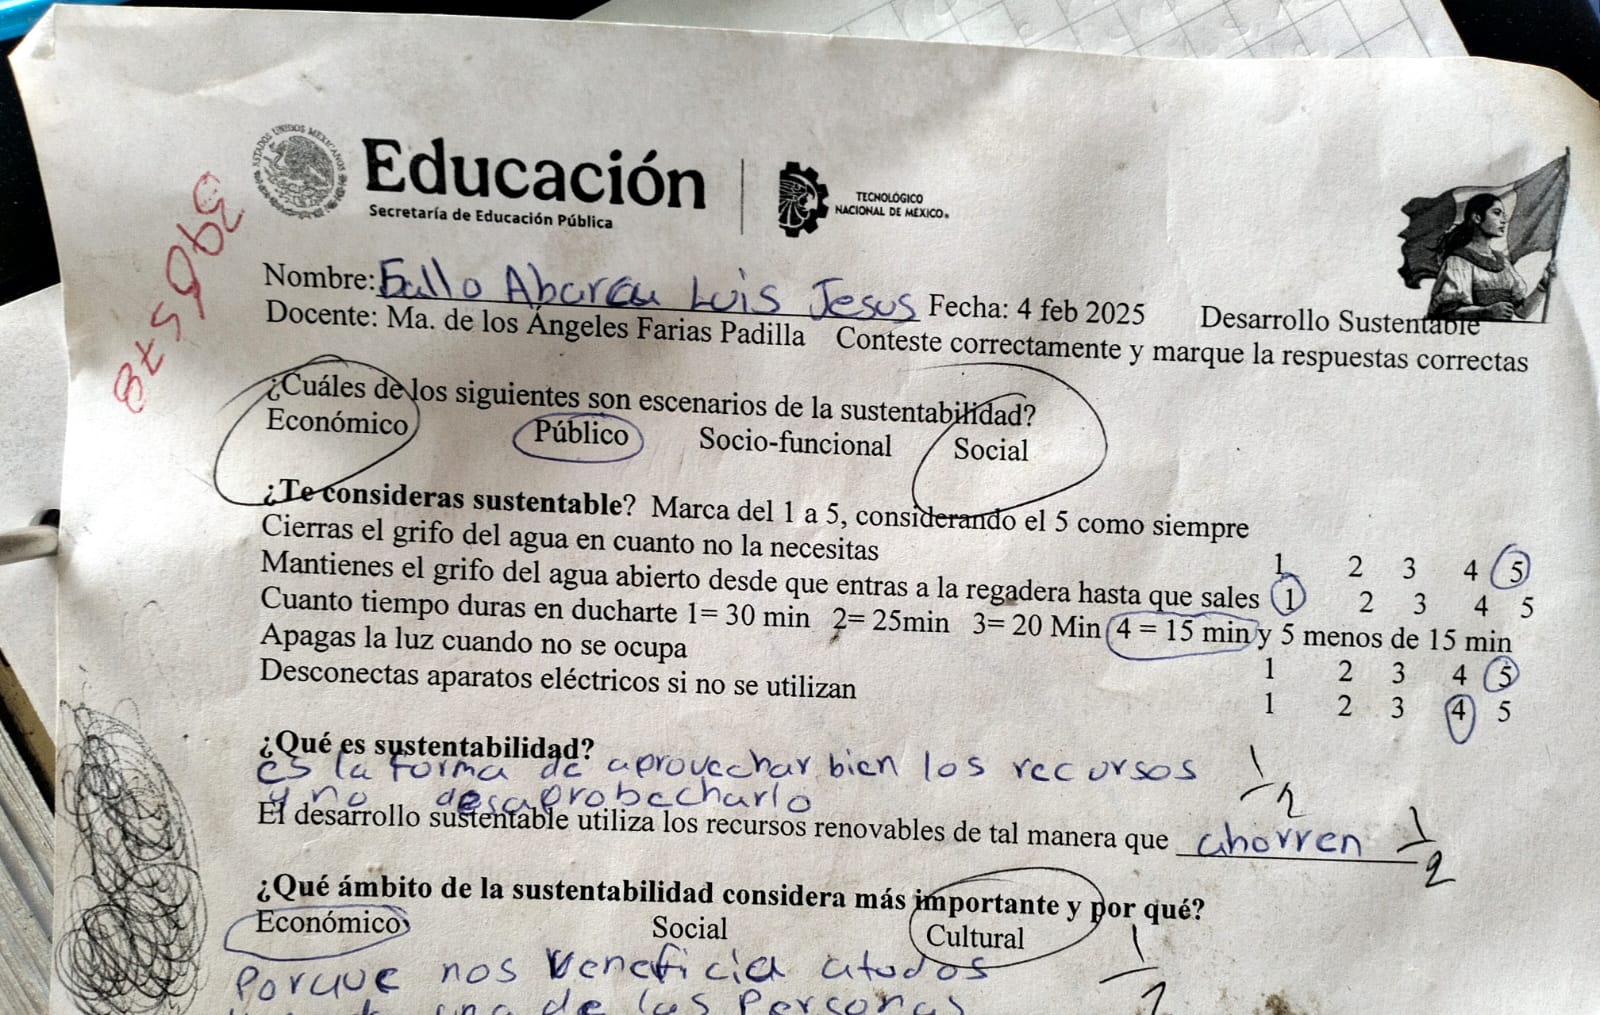 ESTADOS UNIDOS MEXICANOS
Educación
Secretaría de Educación Pública
TECNOLÓGICO
NACIONAL DE MÉXICO®
Nombre: Gallo Abarca Luis Jesus Fecha: 4 feb 2025 Desarrollo Sustentable
Docente: Ma. de los Ángeles Farias Padilla Conteste correctamente y marque la respuestas correctas
¿Cuáles de los siguientes son escenarios de la sustentabilidad?
Económico Público Socio-funcional Social
¿Te consideras sustentable? Marca del 1 a 5, considerando el 5 como siempre
Cierras el grifo del agua en cuanto no la necesitas 1 2 3 4 5
Mantienes el grifo del agua abierto desde que entras a la regadera hasta que sales 1 2 3 4 5
Cuanto tiempo duras en ducharte 1= 30 min 2= 25min 3= 20 Min 4 = 15 min y 5 menos de 15 min
Apagas la luz cuando no se ocupa 1 2 3 4 5
Desconectas aparatos eléctricos si no se utilizan 1 2 3 4 5
¿Qué es sustentabilidad?
es la forma de aprovechar bien los recursos 1/2
y no desaprobecharlo
El desarrollo sustentable utiliza los recursos renovables de tal manera que ahorren 1/2
¿Qué ámbito de la sustentabilidad considera más importante y por qué?
Económico Social Cultural
Porque nos beneficia atodos
de las Personas